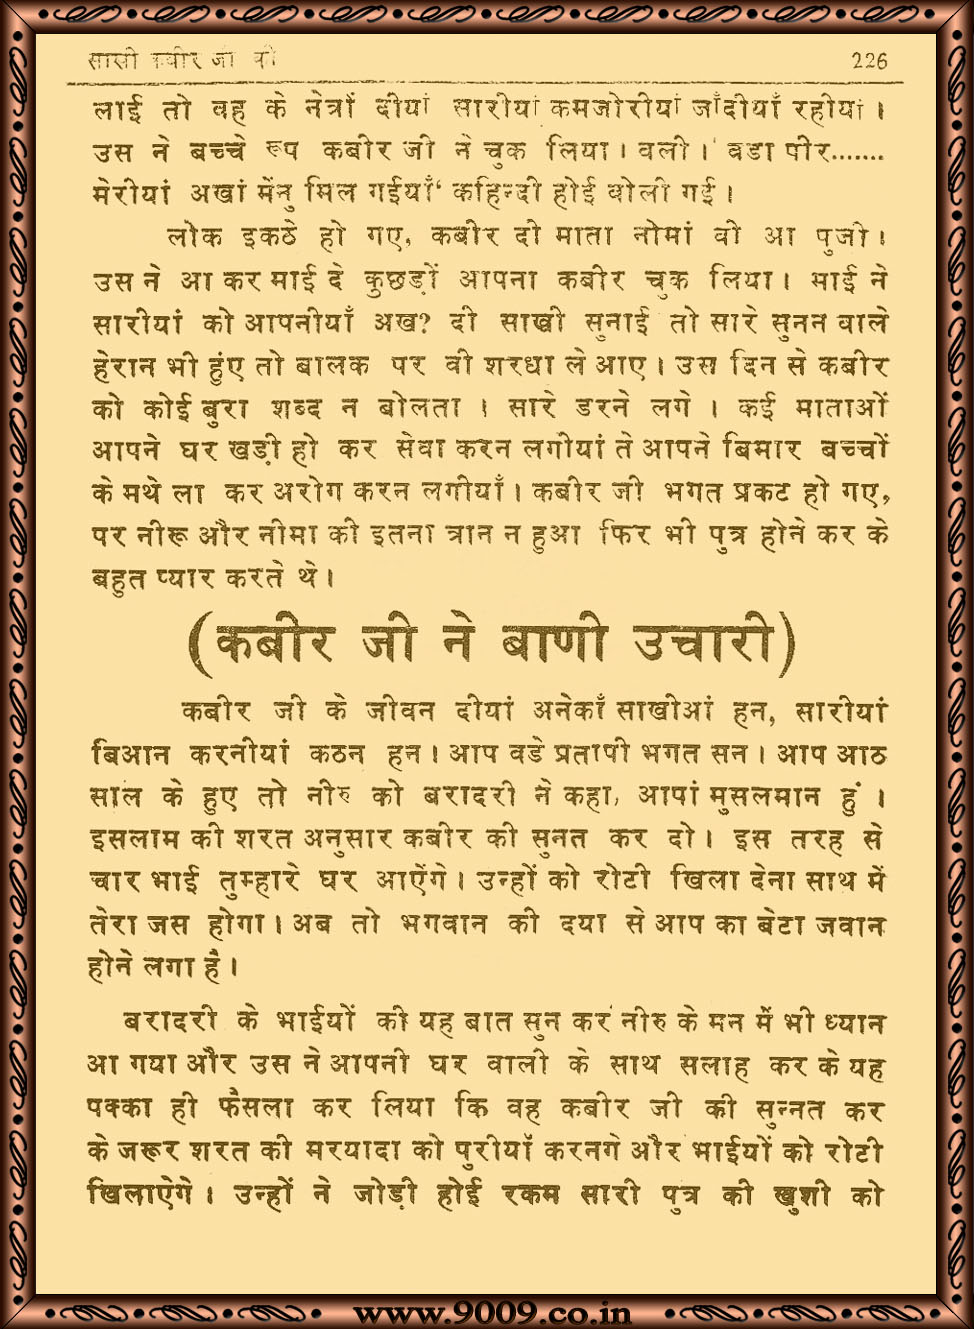 साखी कबीर जी की 226
लाई तो वह के नेत्रों दीयां सारीयां कमजोरीयां जाँदीयाँ रहीयां ।
उस ने बच्चे रूप कबीर जी ने चुक लिया । वली । वडा पीर.......
मेरीयां अखां मेंनु मिल गईयाँ' कहिन्दी होई बोली गई ।
लोक इकठे हो गए, कबीर दी माता नीमां वी आ पुजी ।
उस ने आ कर माई दे कुछड़ों आपना कबीर चुक लिया । माई ने
सारीयां को आपनीयाँ अख? दी साखी सुनाई तो सारे सुनन वाले
हेरान भी हुंए तो बालक पर वी शरधा ले आए । उस दिन से कबीर
को कोई बुरा शब्द न बोलता । सारे डरने लगे । कई माताओं
आपने घर खड़ी हो कर सेवा करन लगीयां ते आपने बिमार बच्चों
के मथे ला कर अरोग करन लगीयाँ । कबीर जी भगत प्रकट हो गए,
पर नीरू और नीमा को इतना त्रान न हुआ फिर भी पुत्र होने कर के
बहुत प्यार करते थे ।
(कबीर जी ने बाणी उचारी)
कबीर जी के जीवन दीयां अनेकाँ साखीआं हन, सारीयां
बिआन करनीयां कठन हन । आप वडे प्रतापी भगत सन । आप आठ
साल के हुए तो नीरु को बरादरी ने कहा, आपां मुसलमान हुं ।
इसलाम की शरत अनुसार कबीर की सुनत कर दो । इस तरह से
चार भाई तुम्हारे घर आऐंगे । उन्हों को रोटी खिला देना साथ में
तेरा जस होगा । अब तो भगवान की दया से आप का बेटा जवान
होने लगा है ।
बरादरी के भाईयों की यह बात सुन कर नीरु के मन में भी ध्यान
आ गया और उस ने आपनी घर वाली के साथ सलाह कर के यह
पक्का ही फैसला कर लिया कि वह कबीर जी की सुन्नत कर
के जरूर शरत की मरयादा को पुरीयाँ करनगे और भाईयों को रोटी
खिलाऐगे । उन्हों ने जोड़ी होई रकम सारी पुत्र की खुशी को
www.9009.co.in